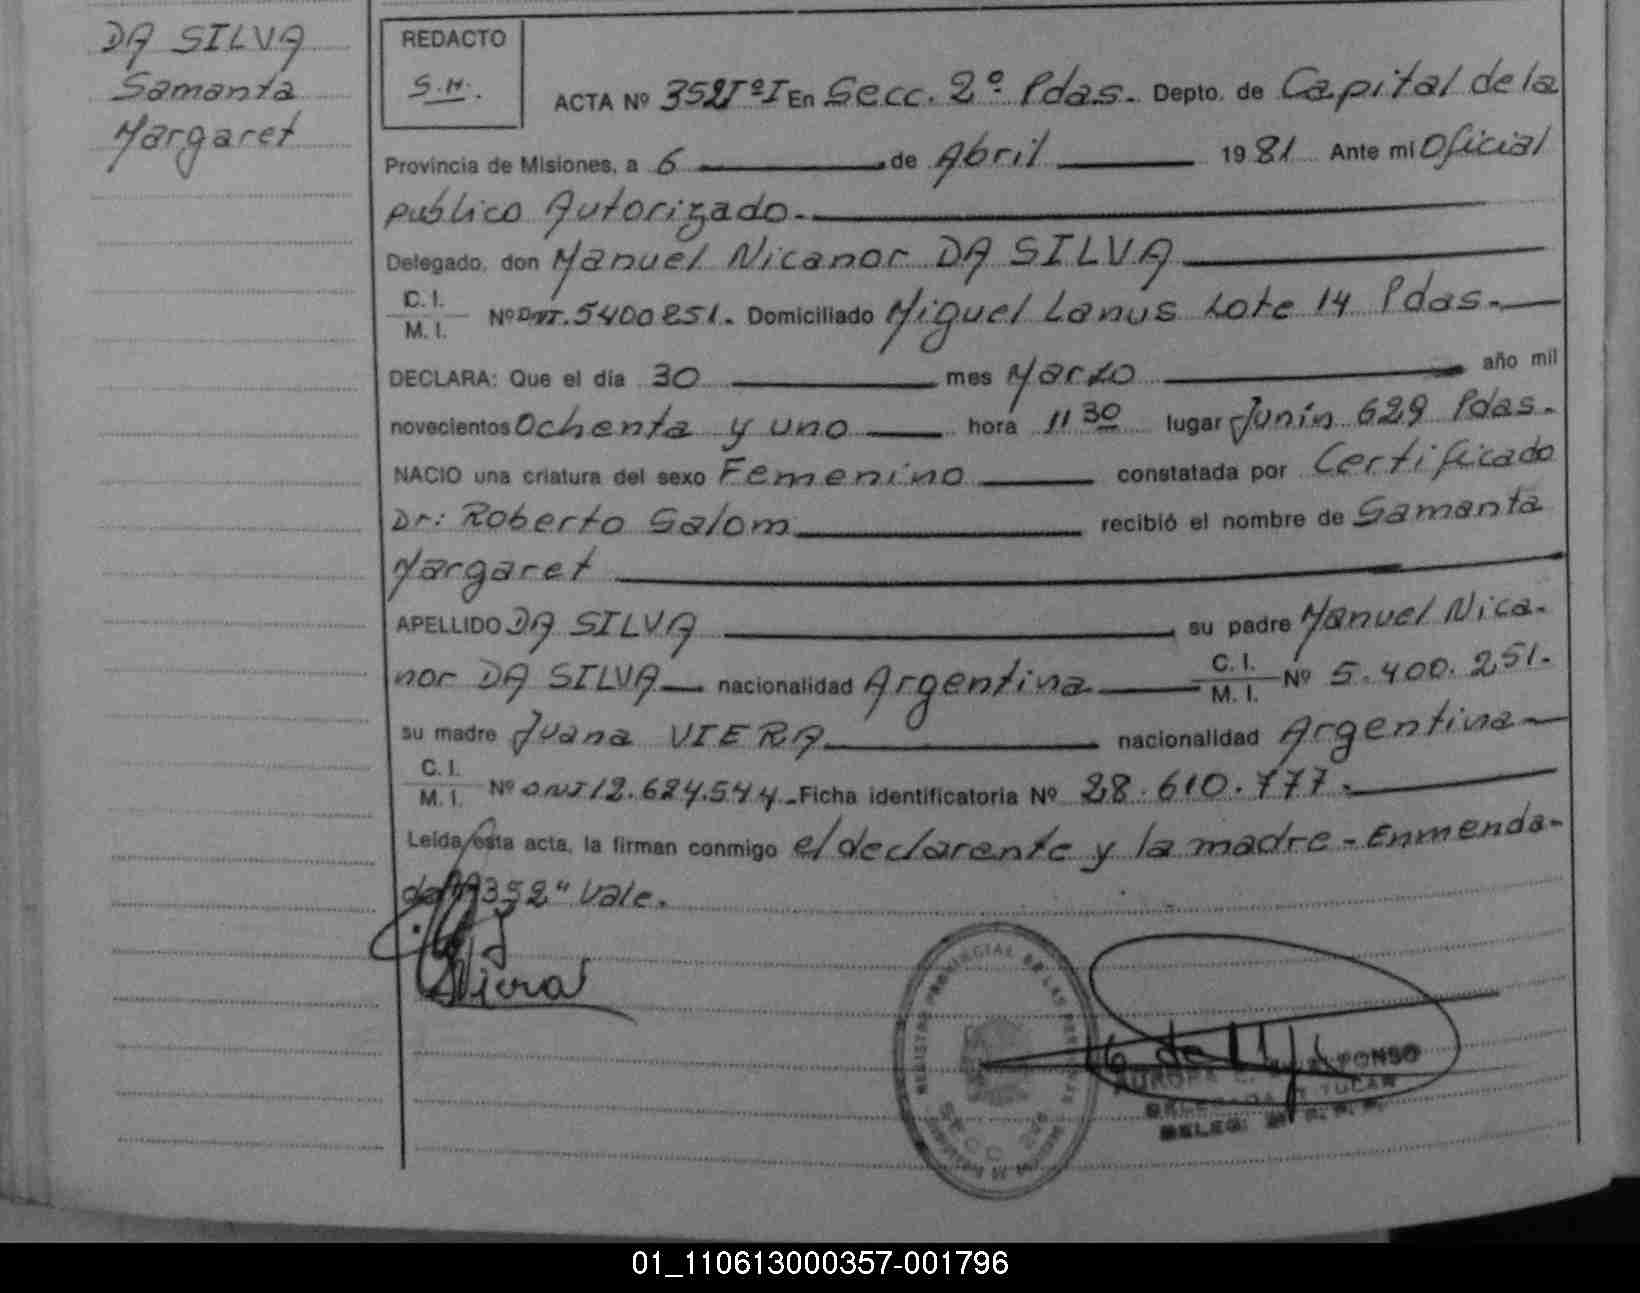 DA SILVA
Samanta
Margaret
REDACTO
S.M.
ACTA Nº 352TºI En Secc. 2º Pdas. Depto. de Capital de la
Provincia de Misiones, a 6 de Abril 1981 Ante mi Oficial
publico Autorizado.
Delegado, don Manuel Nicanor DA SILVA
C. I.
M. I. Nº DNI. 5400251. Domiciliado Miguel Lanus Lote 14 Pdas.
DECLARA: Que el día 30 mes Marzo año mil
novecientos Ochenta y uno hora 11 30 lugar Junín 629 Pdas.
NACIO una criatura del sexo Femenino constatada por Certificado
Dr: Roberto Salom recibió el nombre de Samanta
Margaret
APELLIDO DA SILVA su padre Manuel Nica-
nor DA SILVA nacionalidad Argentina C. I. M. I. Nº 5.400.251.
su madre Juana VIERA nacionalidad Argentina
C. I.
M. I. Nº DNI 12.624.544. Ficha identificatoria Nº 28.610.777.
Leída esta acta, la firman conmigo el declarante y la madre - Enmenda-
do "352" Vale.
Viera
REGISTRO PROVINCIAL DE LAS PERSONAS
SECC. 2da
DELEGADA TITULAR
DELEG.
01_110613000357-001796